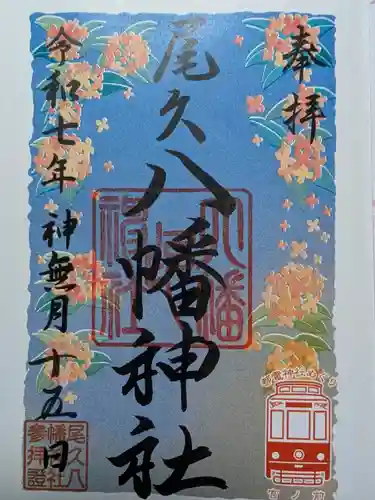 奉拝
尾久八幡神社
令和七年 神無月 十五日
八幡神社
尾久八幡神社参拝證
都電神社めぐり